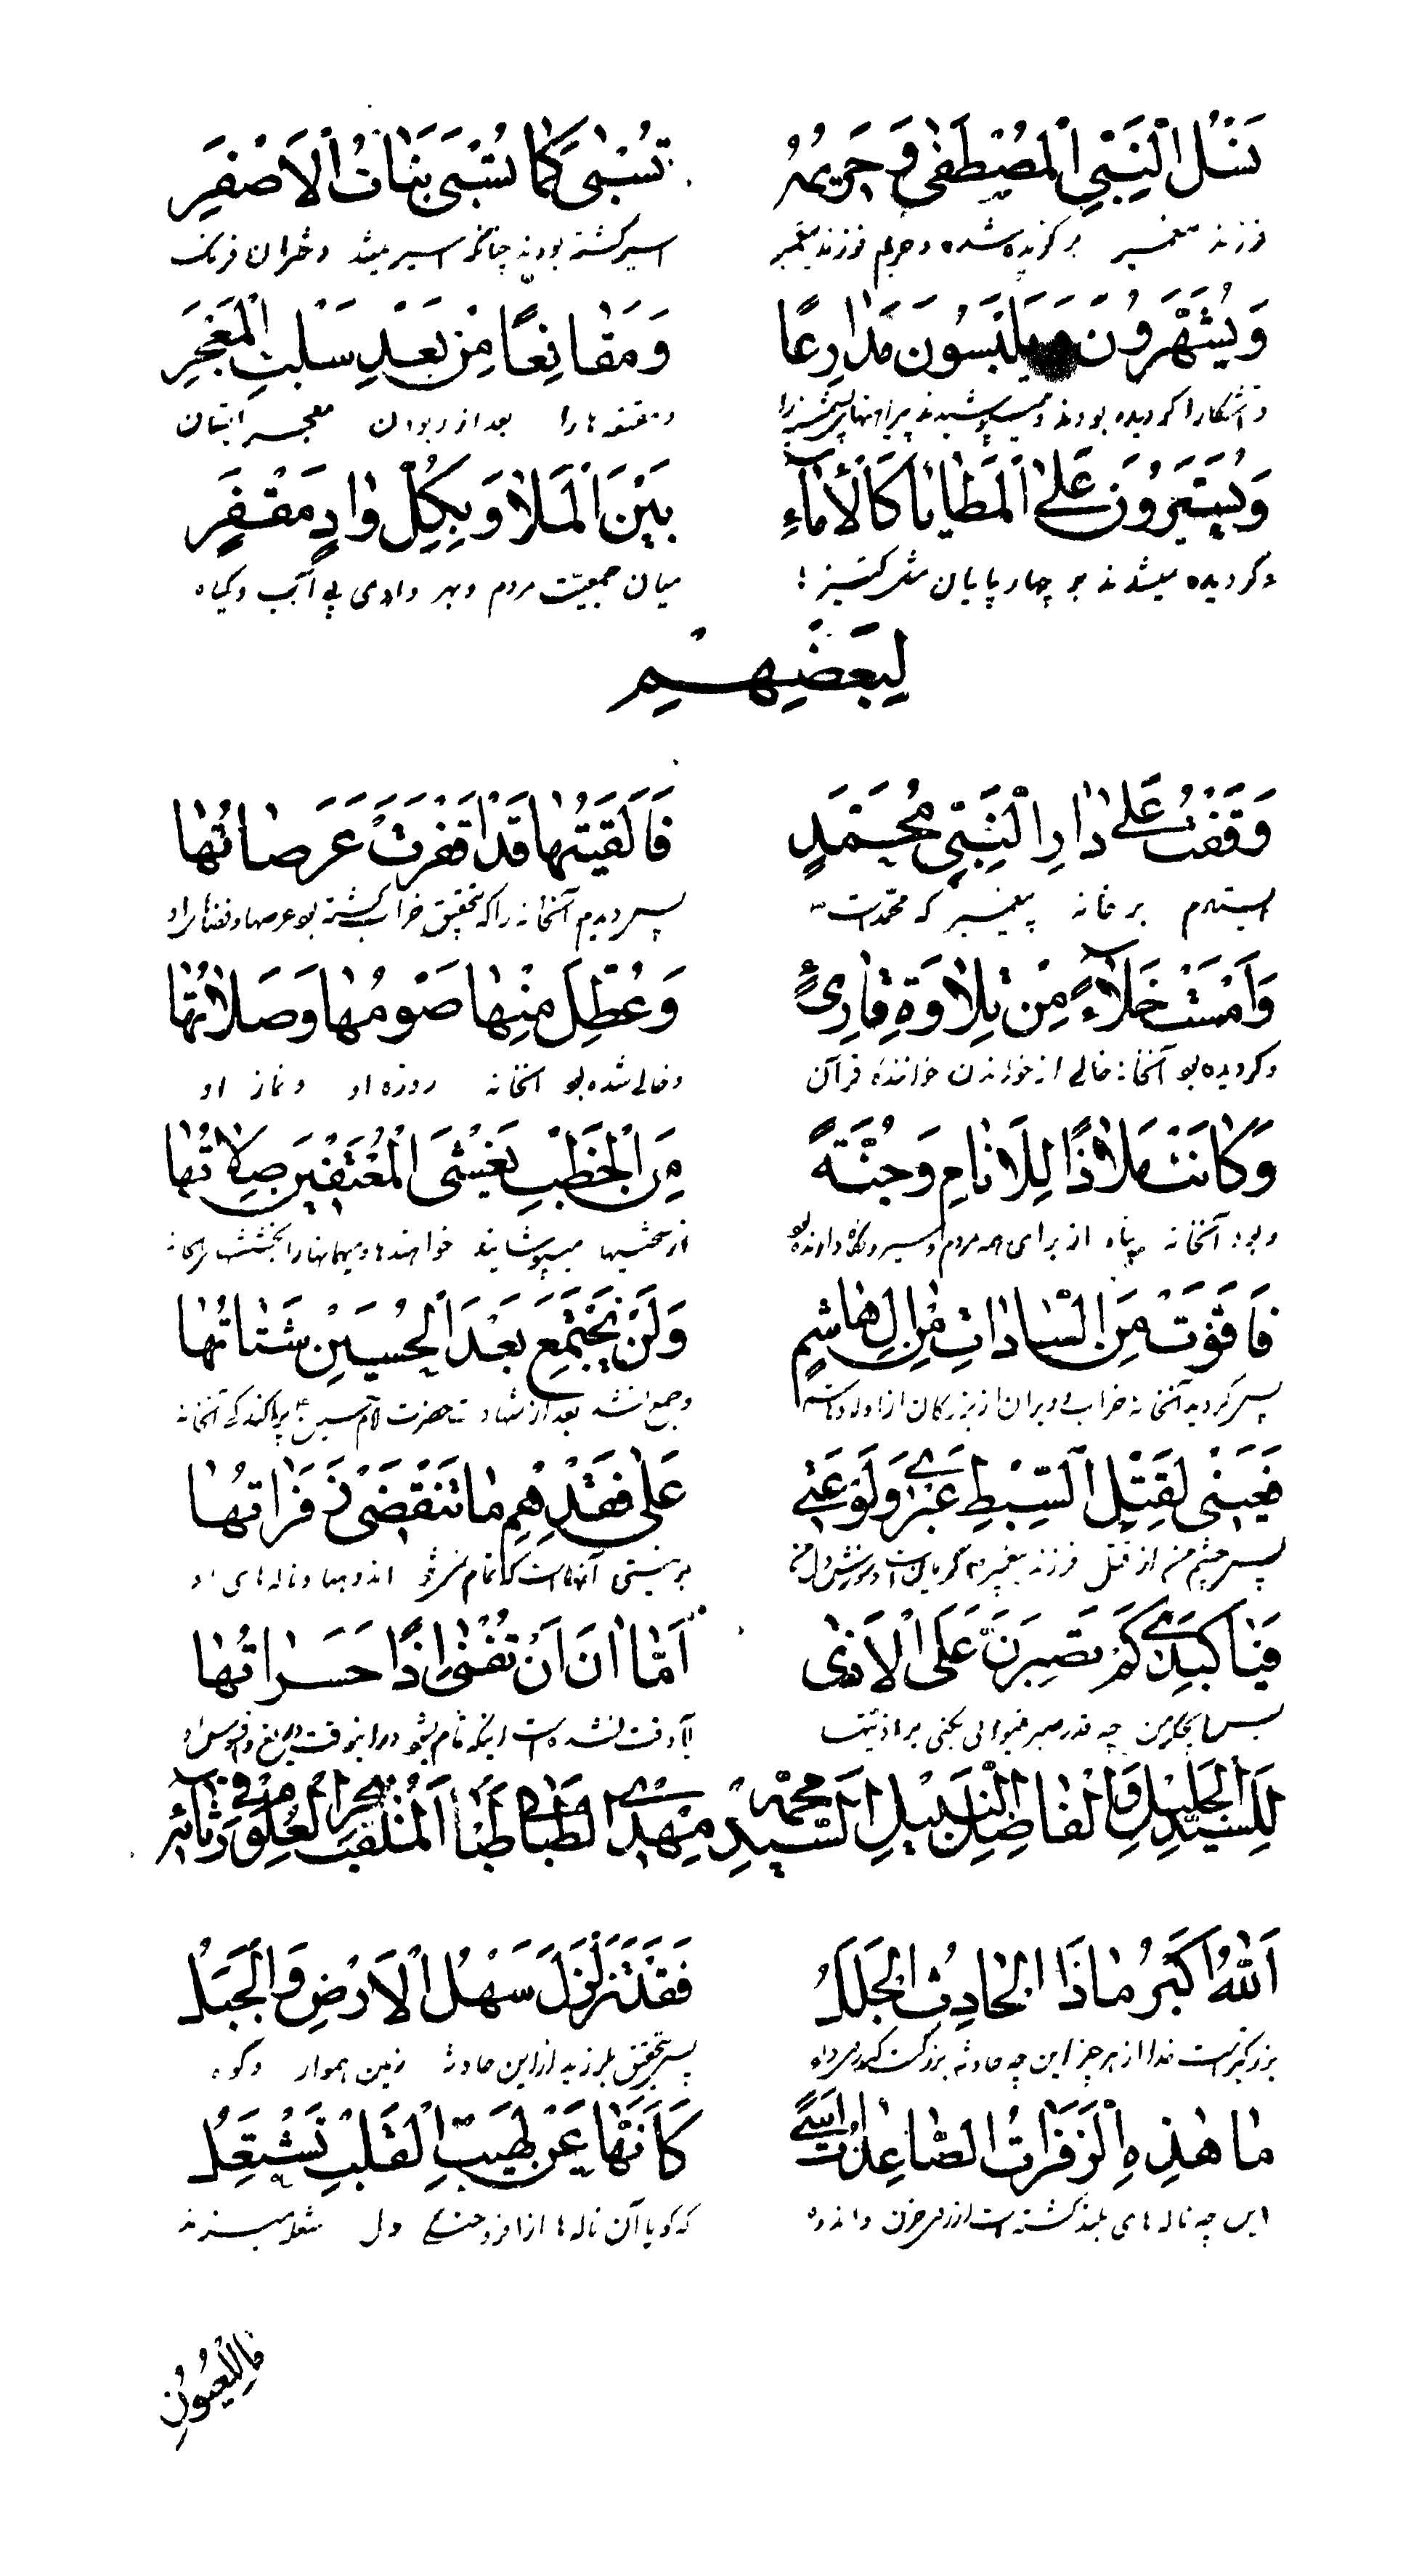 نَسْلُ النَّبِيِّ الْمُصْطَفٰى وَحَرِيمُهُ تُسْبٰى كَمٰا تُسْبٰى بَنٰاتُ الْاَصْفَرِ
فرزند پیغمبر برگزیده شده و حریم فرزند پیغمبر اسیر گشته بودند چنانکه اسیر میشد دختران فرنک
وَيُشَهَّرُونَ وَيَلْبَسُونَ مَدٰارِعًا وَمَقٰانِعًا مِنْ بَعْدِ سَلْبِ الْمِعْجَرِ
و آشکارا گردیده بودند و میپوشیدند پیراهنهای پشمین را و مقنعه‌ها را بعد از ربودن معجر ایشان
وَيُسَيَّرُونَ عَلَى الْمَطٰايٰا كَالْاِمٰآءِ بَيْنَ الْمَلٰا وَبِكُلِّ وٰادٍ مُقْفِرٍ
و گردیده میشدند بر چهارپایان مثل کنیز میان جمعیّت مردم و بهر وادی بی آب و گیاه
لِبَعْضِهِمْ
وَقَفْتُ عَلٰى دٰارِ النَّبِيِّ مُحَمَّدٍ فَاَلْفَيْتُهٰا قَدْ اَقْفَرَتْ عَرَصٰاتُهٰا
ایستادم بر خانه پیغمبر که محمّد است پس دیدم آنخانه را که بتحقیق خراب گشته بود عرصها و فضاهای او
وَاَمْسَتْ خَلٰآءً مِنْ تِلٰاوَةِ قٰارِئٍ وَعُطِّلَ مِنْهٰا صَوْمُهٰا وَصَلٰاتُهٰا
و گردیده بود آنخانه خالی از خواندن خوانندهٔ قرآن و خالی شده بود آنخانه روزه او و نماز او
وَكٰانَتْ مَلٰاذًا لِلْاَنٰامِ وَجُنَّةً مِنَ الْخَطْبِ يَغْشَى الْمُعْتَفِينَ صِلٰاتُهٰا
و بود آنخانه پناه از برای همه مردم و سپر و نگاه دارنده بود از سختیها میپوشانید خواهندها و میهمانها را بخششهای آنخانه
فَاَقْوَتْ مِنَ السّٰادٰاتِ مِنْ اٰلِ هٰاشِمٍ وَلَنْ يَجْتَمِعْ بَعْدَ الْحُسَيْنِ شَتٰاتُهٰا
پس گردید آنخانه خراب و ویران از بزرگان از اولاد هاشم و جمع نشد بعد از شهادت حضرت امام حسین پراکندگی آنخانه
فَعَيْنِي لِقَتْلِ السِّبْطِ عَبْرٰى وَلَوْعَتِي عَلٰى فَقْدِهِمْ مٰا تَنْقَضِي زَفَرٰاتُهٰا
پس چشم من از قتل فرزند پیغمبر گریان است و سوزش دل من بر نیستی آنهاست که تمام نمیشود اندوهها و ناله‌های او
فَيٰا كَبِدِي كَمْ تَصْبِرِينَ عَلَى الْاَذٰى اَمٰا اٰنَ اَنْ تُفْنٰى اِذًا حَسَرٰاتُهٰا
پس ای جگر من چه قدر صبر میتوانی بکنی بر اذیّتها آیا وقت نشده است اینکه تمام شود در اینوقت دریغ و افسوس او
لِلسَّيِّدِ الْجَلِيلِ وَالْفٰاضِلِ النَّبِيلِ السَّيِّدِ مُحَمَّد مَهْدِي الطَّبٰاطَبٰائِي الْمُلَقَّبِ بِبَحْرِ الْعُلُومِ فِي رِثٰآئِهِ
اَللّٰهُ اَكْبَرُ مٰاذَا الْحٰادِثُ الْجَلَلُ فَقَدْ تَزَلْزَلَ سَهْلُ الْاَرْضِ وَالْجَبَلُ
بزرگتر است خدا از هر چیز این چه حادثه بزرگست پس بتحقیق بلرزید از این حادثه زمین هموار و کوه
مٰا هٰذِهِ الزَّفَرٰاتُ الصّٰاعِدٰاتُ اَسًى كَاَنَّهٰا عَنْ لَهِيبِ الْقَلْبِ تَشْتَعِلُ
این چه ناله‌های بلند گشته است از روی حزن و اندوه که گویا آن ناله‌ها از افروختگی دل شعله میزند
مٰا لِلْعُيُونِ